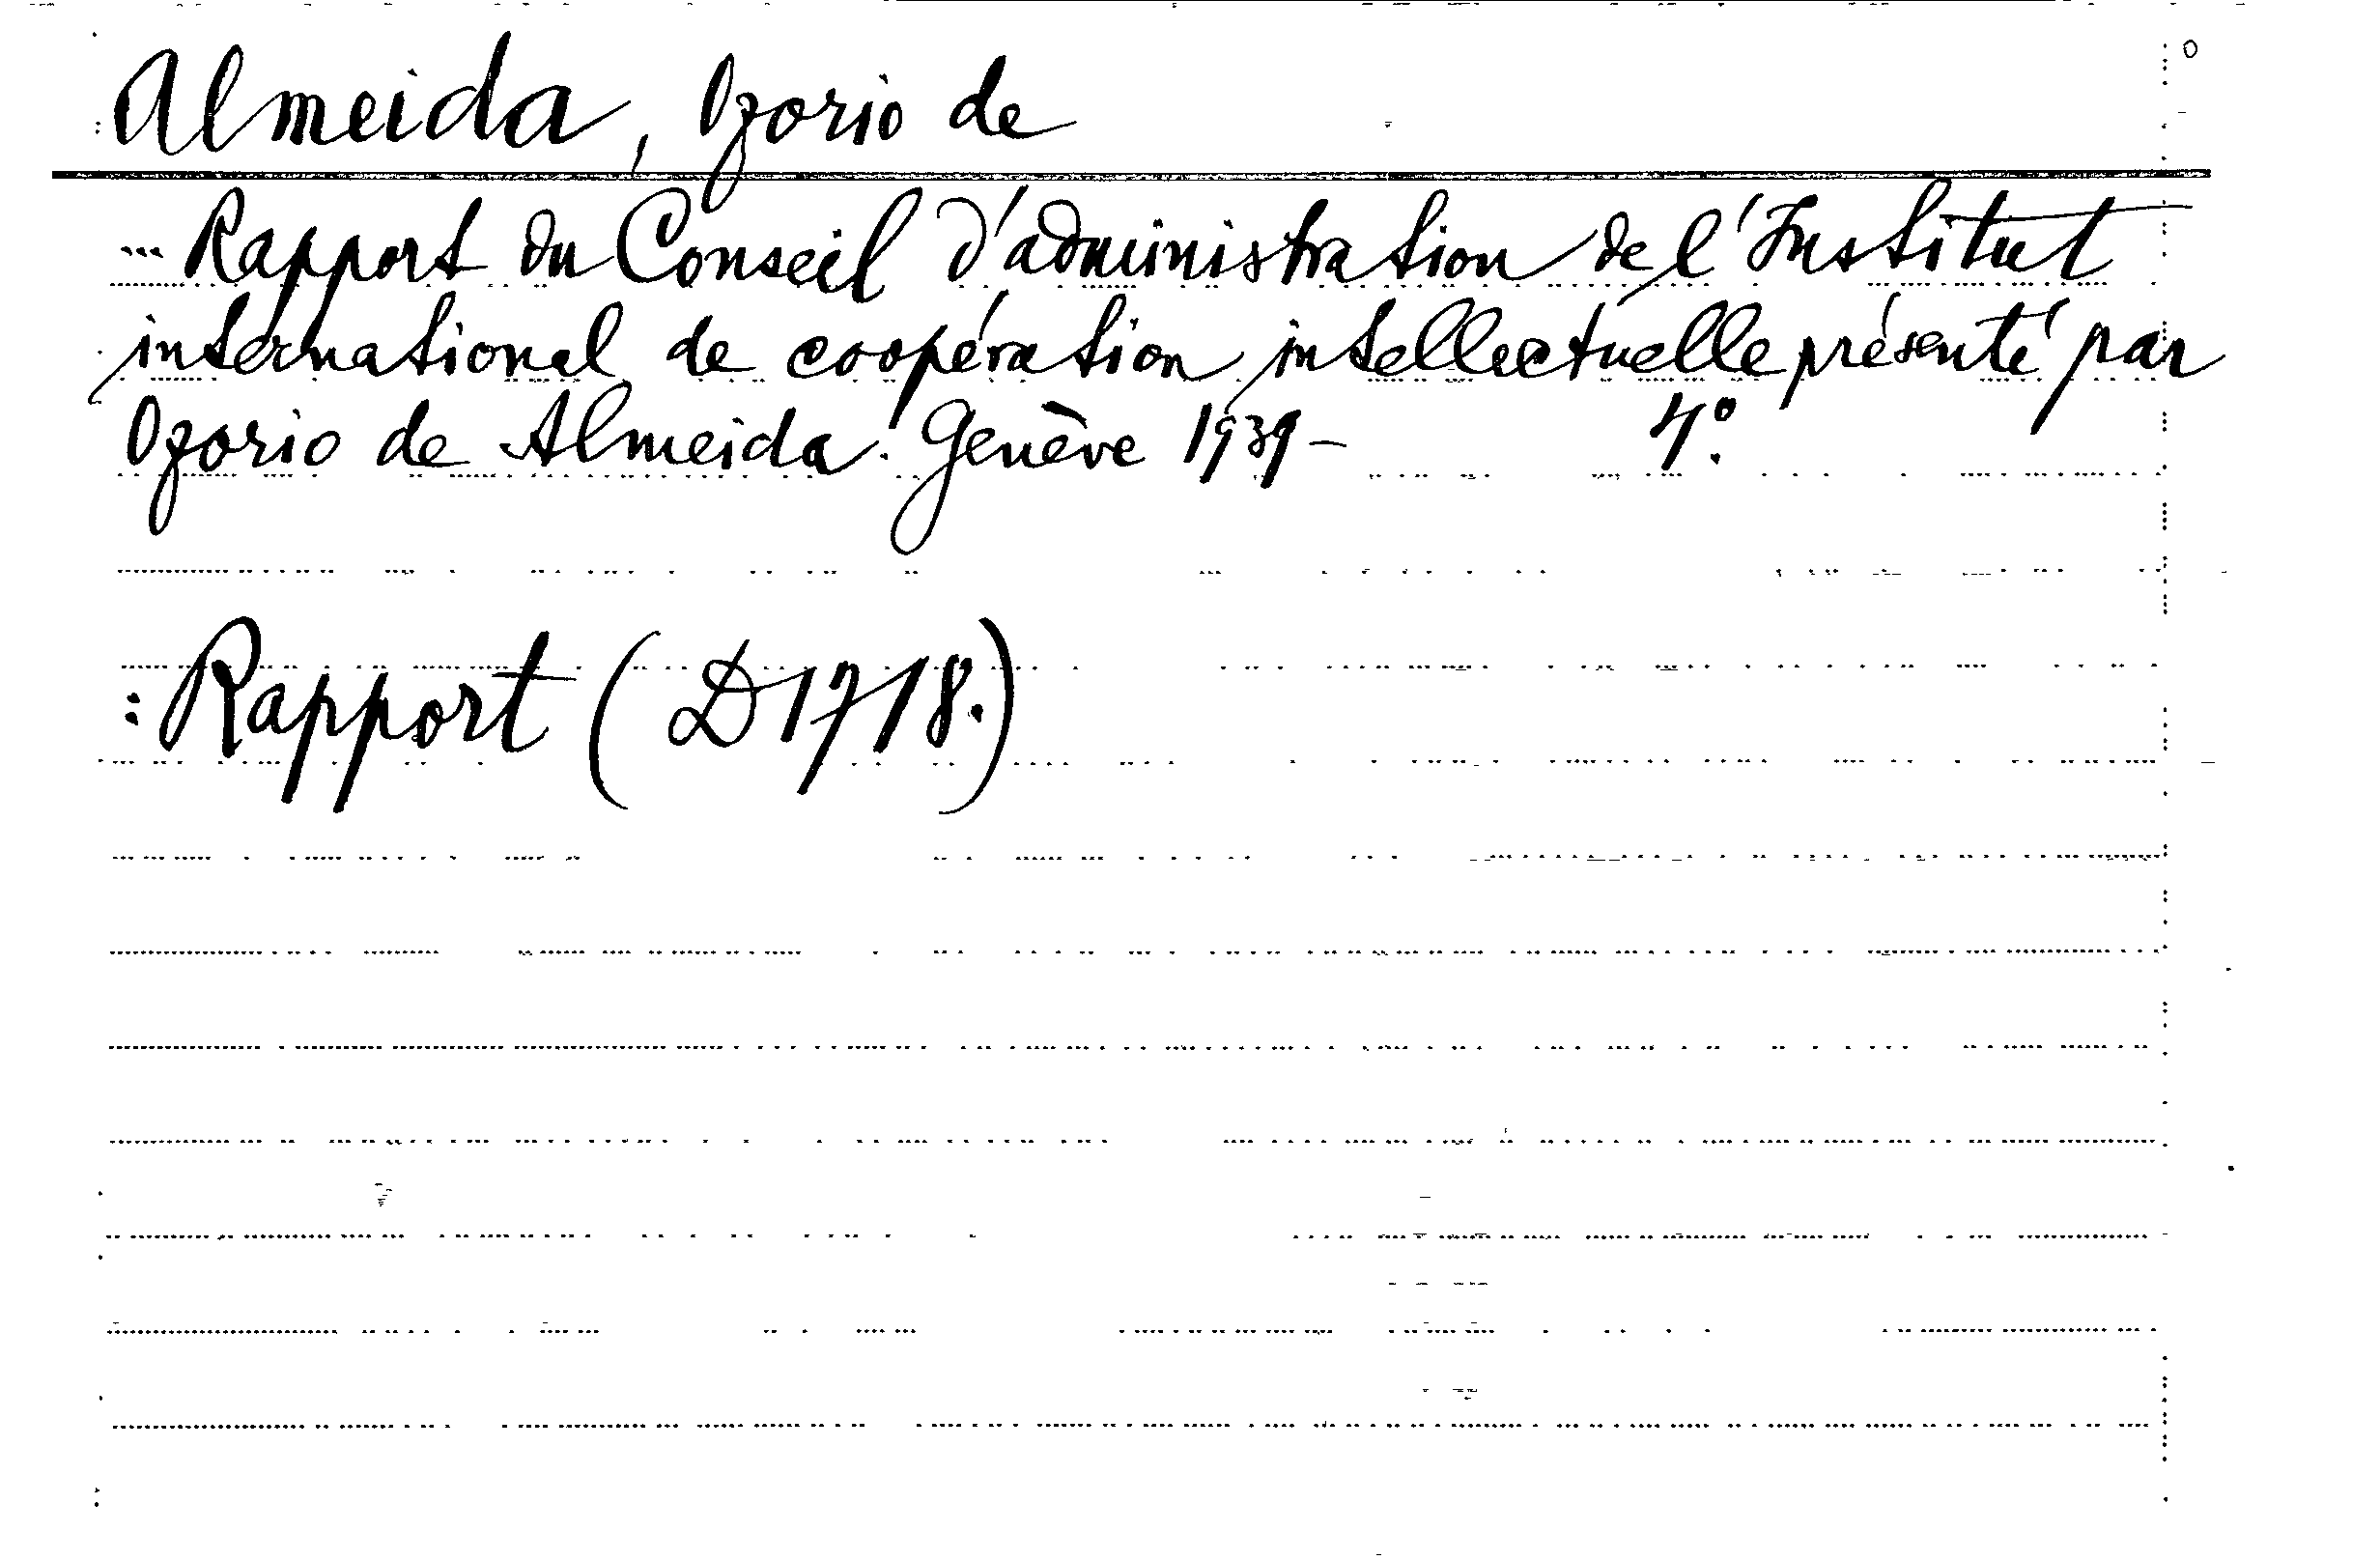 Almeida, Ozorio de
... Rapport du Conseil d'administration de l'Institut
international de coopération intellectuelle présenté par
Ozorio de Almeida. Genève 1939- 4º.
: Rapport ( D1718.)